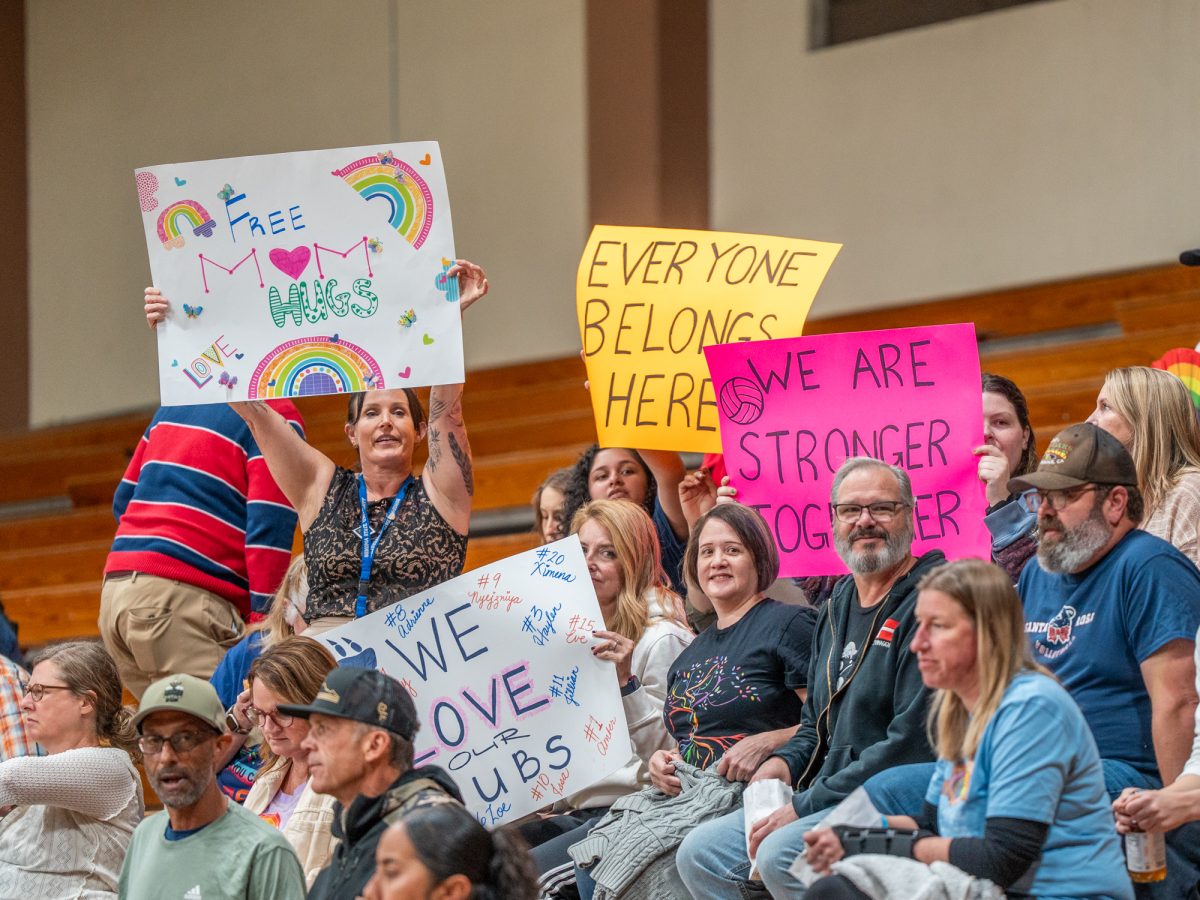 FREE
MOM
HUGS
LOVE
EVERYONE
BELONGS
HERE
WE ARE
STRONGER
TOGETHER
#20
Ximena
#9
Nyejzniya
#8
Adrienne
#3
Jaylen
#15
Eve
WE
#11
Jillian
LOVE
#1
Amber
OUR
UBS
#10
Zoe
SANTA ROSA